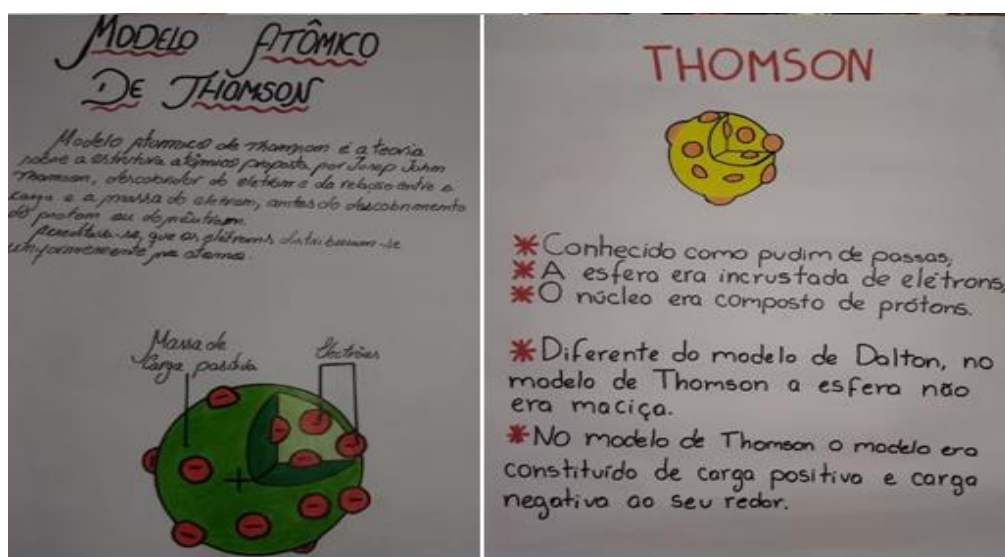 MODELO ATÔMICO
DE THOMSON
Modelo Atomico de Thomson é a teoria
sobre a estrutura atômica proposta por Josep John
Thomson, descobridor do eletron e da relação entre a
carga e a massa do eletron, antes do descobrimento
do proton ou do nêutron.
Acreditava-se, que os elétrons distribuiam-se
uniformemente no atomo.
Massa de
Carga positiva
Electrões
+
THOMSON
*Conhecido como pudim de passas;
*A esfera era incrustada de elétrons;
*O núcleo era composto de prótons.
*Diferente do modelo de Dalton, no
modelo de Thomson a esfera não
era maciça.
*No modelo de Thomson o modelo era
constituído de carga positiva e carga
negativa ao seu redor.